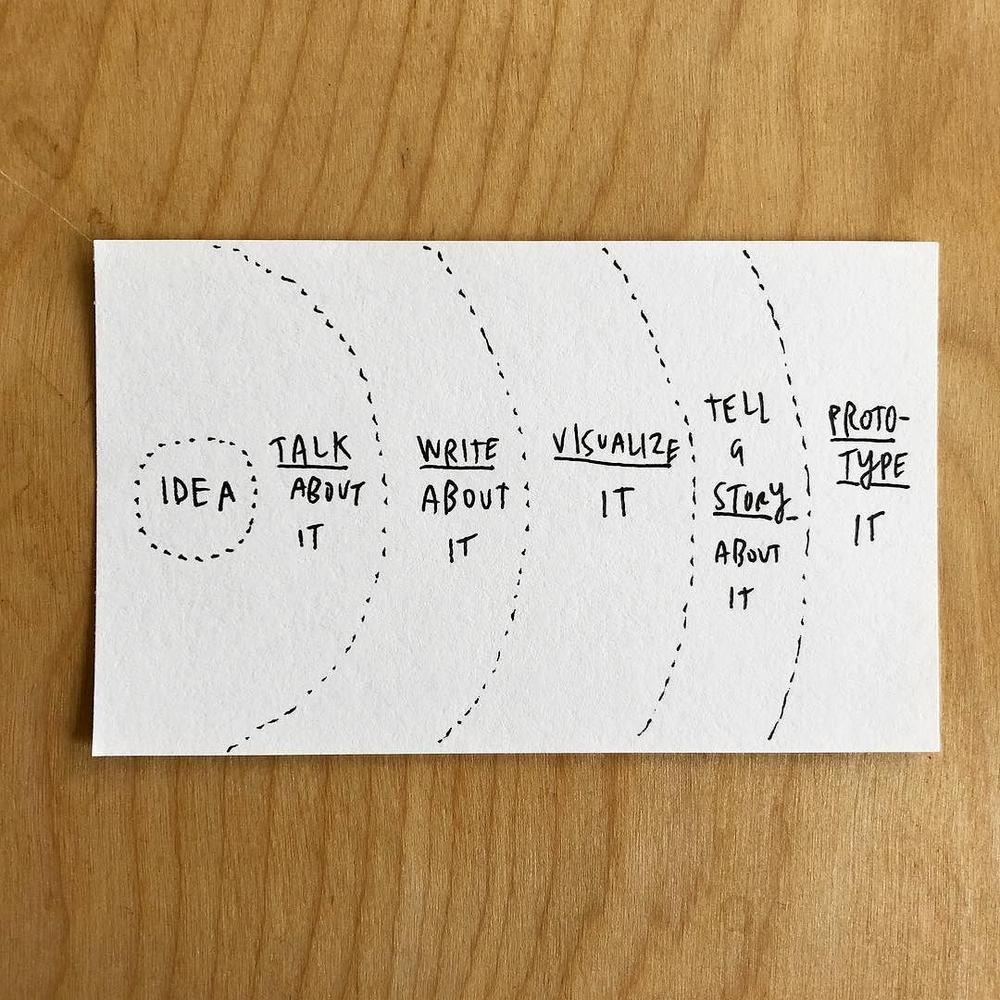 IDEA
TALK
ABOUT
IT
WRITE
ABOUT
IT
VISUALIZE
IT
TELL
A
STORY
ABOUT
IT
PROTO-
TYPE
IT